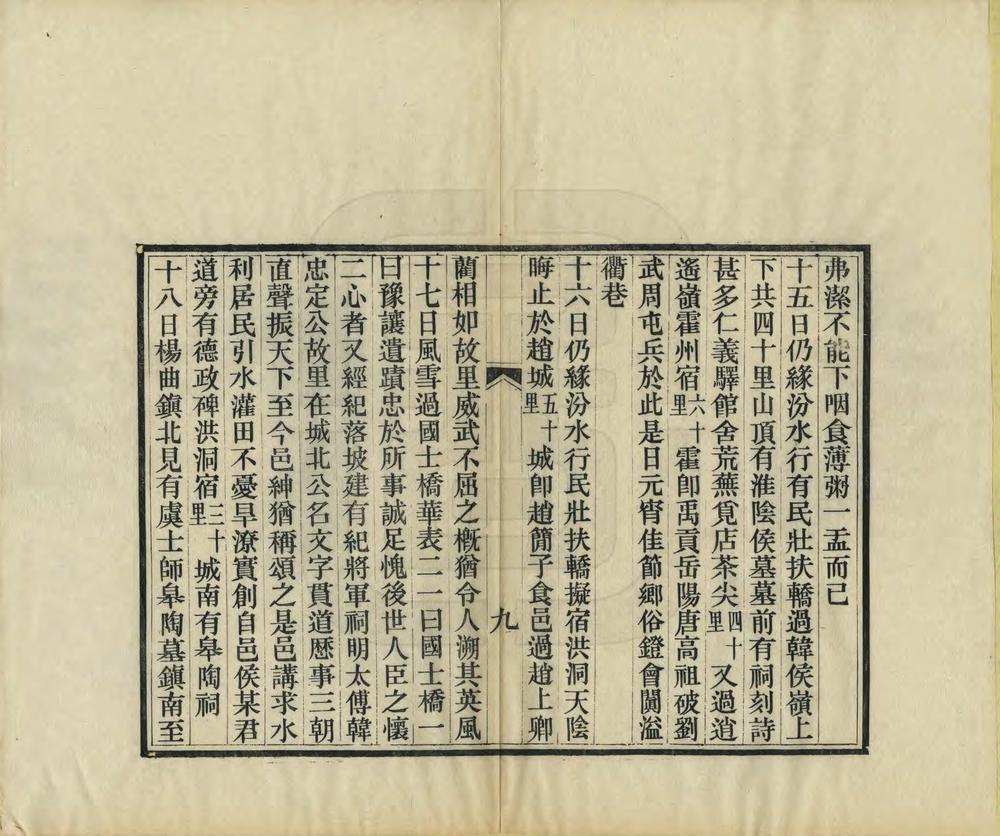 弗潔不能下咽食薄粥一盂而已
十五日仍緣汾水行有民壯扶轎過韓侯嶺上
下共四十里山頂有淮陰侯墓墓前有祠刻詩
甚多仁義驛館舍荒蕪覓店茶尖四十里又過逍
遙嶺霍州宿六十里霍卽禹貢岳陽唐高祖破劉
武周屯兵於此是日元宵佳節鄉俗鐙會闐溢
衢巷
十六日仍緣汾水行民壯扶轎擬宿洪洞天陰
晦止於趙城五十里城卽趙簡子食邑過趙上卿
九
藺相如故里威武不屈之槪猶令人溯其英風
十七日風雪過國士橋華表二一曰國士橋一
曰豫讓遺蹟忠於所事誠足愧後世人臣之懷
二心者又經紀落坡建有紀將軍祠明太傅韓
忠定公故里在城北公名文字貫道歷事三朝
直聲振天下至今邑紳猶稱頌之是邑講求水
利居民引水灌田不憂旱潦實創自邑侯某君
道旁有德政碑洪洞宿三十里城南有皋陶祠
十八日楊曲鎭北見有虞士師皋陶墓鎭南至